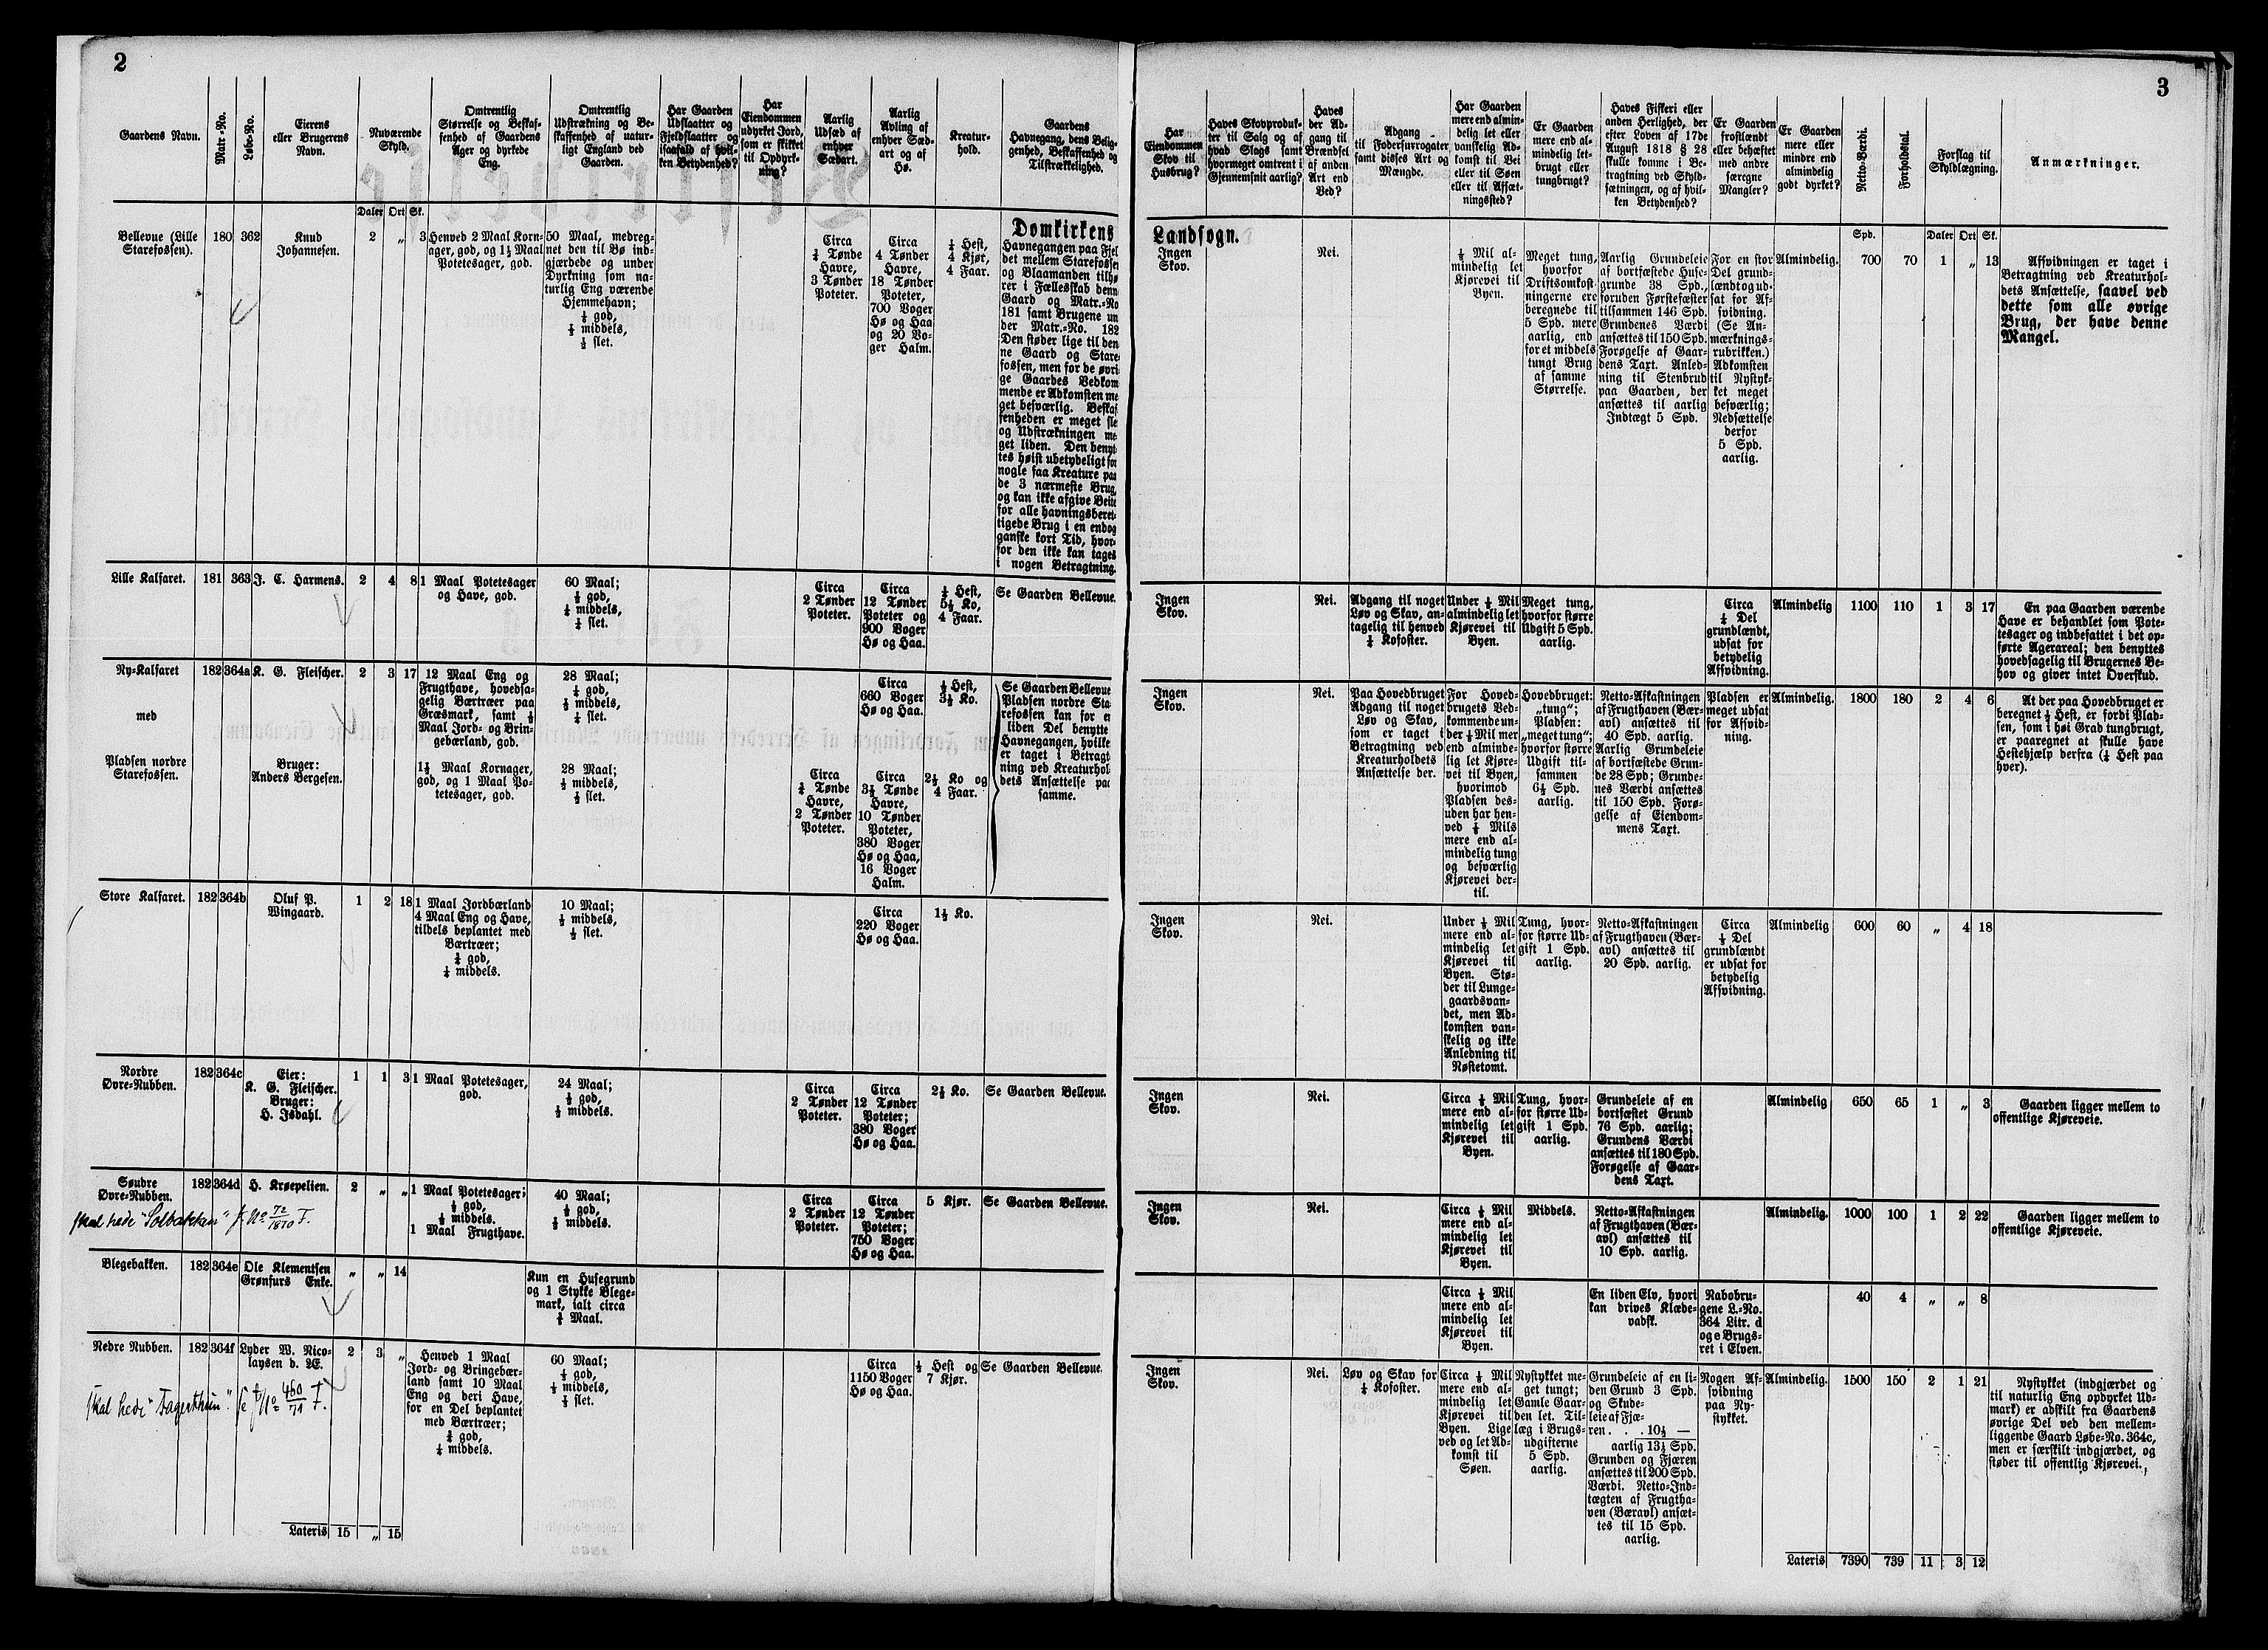 2
3
Gaardens Navn.
Matr.-No.
Løbe-No.
Eierens
eller Brugerens
Navn.
Nuværende
Skyld.
Omtrentlig
Størrelse og Beskaf-
fenhed af Gaardens
Ager og dyrkede
Eng.
Omtrentlig
Udstrækning og Be-
skaffenhed af natur-
ligt England ved
Gaarden.
Har Gaarden
Udslaatter og
Fjeldslaatter og
isaafald af hvil-
ken Betydenhed?
Har
Eiendommen
udyrket Jord,
som er skikket
til Opdyrk-
ning?
Aarlig
Udsæd af
enhver
Sædart.
Aarlig
Avling af
enhver Sæd-
art og af
Hø.
Kreatur-
hold.
Gaardens
Havnegang, dens Belig-
genhed, Beskaffenhed og
Tilstrækkelighed.
Har
Eiendommen
Skov til
Husbrug?
Haves Skovproduk-
ter til Salg og af
hvad Slags samt
hvormeget omtrent i
Gjennemsnit aarlig?
Haves
der Ad-
gang til
Brændsel
af anden
Art end
Ved?
Adgang
til Fodersurrogater
samt disses Art og
Mængde.
Har Gaarden
mere end almin-
delig let eller
vanskelig Ad-
komst til Vei
eller til Søen
eller til Afsæt-
ningssted?
Er Gaarden
mere end al-
mindelig let-
brugt eller
tungbrugt?
Haves Fiskeri eller
anden Herlighed, der
efter Loven af 17de
August 1818 § 28
skulle komme i Be-
tragtning ved Skyld-
sætningen, og af hvil-
ken Betydenhed?
Er Gaarden
frostlændt
eller behæftet
med andre
særegne
Mangler?
Er Gaarden
mere eller
mindre end
almindelig
godt dyrket?
Netto-Værdi.
Forholdstal.
Forslag til
Skyldlægning.
Anmærkninger.
Daler Ort Sk.
Domkirkens
Landsogn.
Spd.
Daler Ort Sk.
Bellevue (Lille
Starefossen).
180 362
Knud
Johannesen.
2 „ 3
Henved 2 Maal Korn-
ager, god, og 1½ Maal
Potetesager, god.
50 Maal, medreg-
net den til Bø ind-
gjærdede og under
Dyrkning som na-
turlig Eng værende
Hjemmehavn;
¼ god,
¼ middels,
½ slet.
Circa
¾ Tønde
Havre,
3 Tønder
Poteter.
Circa
4 Tønder
Havre,
18 Tønder
Poteter,
700 Voger
Hø og Haa
og 20 Vo-
ger Halm.
½ Hest,
4 Kjør,
4 Faar.
Havnegangen paa Fjel
det mellem Starefossen
og Blaamanden tilhø
rer i Fællesskab denn
Gaard og Matr.-No
181 samt Brugene un
der Matr.-No. 182
Den støder lige til den
ne Gaard og Stare
fossen, men for de øvri
ge Gaardes Vedkom
mende er Adkomsten me
get besværlig. Beskaf
fenheden er meget sle
og Udstrækningen me
get liden. Den beny
tes høist ubetydeligt for
nogle faa Kreature paa
de 3 nærmeste Brug,
og kan ikke afgive Beite
for alle havningsberet-
tigede Brug i en endog
ganske kort Tid, hvor-
for den ikke kan tages
i nogen Betragtning.
Ingen
Skov.
Nei.
½ Mil al-
mindelig let
Kjørevei til
Byen.
Meget tung,
hvorfor
Driftsomkost-
ningerne ere
beregnede til
5 Spd. mere
aarlig, end
for et middels
tungt Brug
af samme
Størrelse.
Aarlig Grundeleie
af bortfæstede Huse-
grunde 38 Spd.,
foruden Førstefæster
tilsammen 146 Spd.
Grundenes Værdi
ansættes til 150 Spd.
Forøgelse af Gaar-
dens Taxt. Anled-
ning til Stenbrud
paa Gaarden, der
ansættes til aarlig
Indtægt 5 Spd.
For en stor
Del grund-
lændt og ud-
sat for Af-
svidning.
(Se An-
mærknings-
rubrikken.)
Adkomsten
til Nystyk-
ket meget
besværlig;
Nedsættelse
derfor
5 Spd.
aarlig.
Almindelig.
700 70 1 „ 13
Afsvidningen er taget i
Betragtning ved Kreaturhol-
dets Ansættelse, saavel ved
dette som alle øvrige
Brug, der have denne
Mangel.
Lille Kalfaret. 181 363 J. C. Harmens. 2 4 8
1 Maal Potetesager
og Have, god.
60 Maal;
¼ god,
¼ middels,
¼ slet.
Circa
2 Tønder
Poteter.
Circa
12 Tønder
Poteter og
900 Voger
Hø og Haa.
½ Hest,
5½ Ko,
4 Faar.
Se Gaarden Bellevue.
Ingen
Skov.
Nei.
Adgang til noget
Løv og Skav, an-
tagelig til henved
¼ Kofoster.
Under ½ Mil
almindelig let
Kjørevei til
Byen.
Meget tung,
hvorfor større
Udgift 5 Spd.
aarlig.
Circa
¼ Del
grundlændt,
udsat for
betydelig
Afsvidning.
Almindelig 1100 110 1 3 17
En paa Gaarden værende
Have er behandlet som Pote-
tesager og indbefattet i det op-
førte Agerareal; den benyttes
hovedsagelig til Brugernes Be-
hov og giver intet Overskud.
Ny-Kalfaret 182 364a K. G. Fleischer. 2 3 17
med
Pladsen nordre
Starefossen.
Bruger:
Anders Bergesen.
12 Maal Eng og
Frugthave, hovedsa-
gelig Bærtræer paa
Græsmark, samt ½
Maal Jord- og Brin-
gebærland, god.
1½ Maal Kornager,
god, og 1 Maal Po-
tetesager, god.
28 Maal;
¼ god,
½ middels,
¼ slet.
28 Maal;
½ middels,
½ slet.
Circa
¾ Tønde
Havre,
2 Tønder
Poteter.
Circa
660 Voger
Hø og Haa.
Circa
3½ Tønde
Havre,
10 Tønder
Poteter,
380 Voger
Hø og Haa,
16 Voger
Halm.
½ Hest,
3½ Ko.
2½ Ko og
4 Faar.
Se Gaarden Bellevue
Pladsen nordre Sta
refossen kan for en
liden Del benytte
Havnegangen, hvilke
er taget i Betragt
ning ved Kreaturhol
dets Ansættelse paa
samme.
Ingen
Skov.
Nei.
Paa Hovedbruget
Adgang til noget
Løv og Skav,
som er taget i
Betragtning ved
Kreaturholdets
Ansættelse der.
For Hoved-
brugets Ved-
kommende un-
der ½ Mil mer
end alminde-
lig let Kjøre-
vei til Byen,
hvorimod
Pladsen des-
uden har hen-
ved ¼ Mils
mere end al-
mindelig tung
og besværlig
Kjørevei der-
til.
Hovedbruget:
„tung“;
Pladsen:
„meget tung“;
hvorfor større
Udgift til-
sammen
6½ Spd.
aarlig.
Netto-Afkastningen
af Frugthaven (Bær-
avl) ansættes til
40 Spd. aarlig.
Aarlig Grundeleie
af bortfæstede Grun-
de 28 Spd; Grunde-
nes Værdi ansættes
til 150 Spd. Forø-
gelse af Eiendom-
mens Taxt.
Pladsen er
meget udsat
for Afsvid-
ning.
Almindelig. 1800 180 2 4 6
At der paa Hovedbruget er
beregnet ½ Hest, er fordi Plad-
sen, som i høi Grad tungbrugt,
er paaregnet at skulle have
Hestehjælp derfra (¼ Hest paa
hver).
Store Kalfaret. 182 364b
Oluf P.
Wingaard.
1 2 18
1 Maal Jordbærland
4 Maal Eng og Have,
tildels beplantet med
Bærtræer;
¾ god,
¼ middels.
10 Maal;
½ middels,
½ slet.
Circa
220 Voger
Hø og Haa.
1½ Ko.
Ingen
Skov.
Nei.
Under ½ Mil
mere end al-
mindelig let
Kjørevei til
Byen. Stø-
der til Lunge-
gaardsvan-
det, men Ad-
komsten van-
skelig og ikke
Anledning til
Nøstetomt.
Tung, hvor-
for større Ud-
gift 1 Spd.
aarlig.
Netto-Afkastningen
af Frugthaven (Bær-
avl) ansættes til
20 Spd. aarlig.
Circa
½ Del
grundlændt
er udsat for
betydelig
Afsvidning.
Almindelig 600 60 „ 4 18
Nordre
Øvre-Nubben.
182 364c
Eier:
K. G. Fleischer.
Bruger:
H. Isdahl.
1 1 3
1 Maal Potetesager,
god.
24 Maal;
½ god,
½ middels.
Circa
2 Tønder
Poteter.
Circa
12 Tønder
Poteter;
380 Voger
Hø og Haa.
2½ Ko.
Se Gaarden Bellevue.
Ingen
Skov.
Nei.
Circa ½ Mil
mere end al-
mindelig let
Kjørevei til
Byen.
Tung, hvor-
for større Ud-
gift 1 Spd.
aarlig.
Grundeleie af en
bortfæstet Grund
76 Spd. aarlig;
Grundens Værdi
ansættes til 180 Spd.
Forøgelse af Gaar-
dens Taxt.
Almindelig 650 65 1 „ 3
Gaarden ligger mellem to
offentlige Kjøreveie.
Søndre
Øvre-Nubben.
182 364d H. Krøepelien. 2 „ „
skal hede "Solbakken" f. No 72/1870 F.
1 Maal Potetesager;
½ god,
½ middels.
1 Maal Frugthave.
40 Maal;
½ god,
½ middels.
Circa
2 Tønder
Poteter.
Circa
12 Tønder
Poteter;
750 Voger
Hø og Haa.
5 Kjør.
Se Gaarden Bellevue.
Ingen
Skov.
Nei.
Circa ½ Mil
mere end al-
mindelig let
Kjørevei til
Byen.
Middels.
Netto-Afkastningen
af Frugthaven (Bær-
avl) ansættes til
10 Spd. aarlig.
Almindelig. 1000 100 1 2 22
Gaarden ligger mellem to
offentlige Kjøreveie.
Blegebakken. 182 364e
Ole Klementsen
Grønfurs Enke.
„ „ 14
Kun en Husegrund
og 1 Stykke Blege-
mark, ialt circa
¾ Maal.
Circa ½ Mil
mere end al-
mindelig let
Kjørevei til
Byen.
En liden Elv, hvori
kan drives Klæde-
vadsk.
Nabobru-
gene L.-No.
364 Litr. d
og e Brugs-
ret i Elven.
40 4 „ „ 8
Nedre Nubben. 182 364f
Lyder W. Nico-
laysen d. Æ.
2 3 „
skal hede "Fagerthun". Se f. No 460/71 F.
Henved 1 Maal
Jord- og Bringebær-
land samt 10 Maal
Eng og deri Have,
for en Del beplantet
med Bærtræer;
¾ god,
¼ middels.
60 Maal;
¼ god,
½ middels,
¼ slet.
Circa
1150 Voger
Hø og Haa.
½ Hest og
7 Kjør.
Se Gaarden Bellevue.
Ingen
Skov.
Nei.
Løv og Skav for
¼ Kofoster.
Circa ½ Mil
mere end al-
mindelig let
Kjørevei til
Byen. Lige
ved og let Ad-
komst til
Søen.
Nystykket me-
get tungt;
Gamle Gaar-
den let. Til-
læg i Brugs-
udgifterne
5 Spd.
aarlig.
Grundeleie af en li-
den Grund 3 Spd.
og Skude-
leie af Fjæ-
ren . . . 10½ —
aarlig 13½ Spd.
Grunden og Fjæren
ansættes til 200 Spd.
Værdi. Netto-Ind-
tægten af Frugtha-
ven (Bæravl) ansæt-
tes til 15 Spd.
aarlig.
Nogen Af-
svidning
paa Ny-
stykket.
Almindelig. 1500 150 2 1 21
Nystykket (indgjærdet og
til naturlig Eng opdyrket Ud-
mark) er adskilt fra Gaardens
øvrige Del ved den mellem-
liggende Gaard Løbe-No. 364c,
men er særskilt indgjærdet, og
støder til offentlig Kjørevei.
Lateris 15 „ 15
Lateris 7390 739 11 3 12